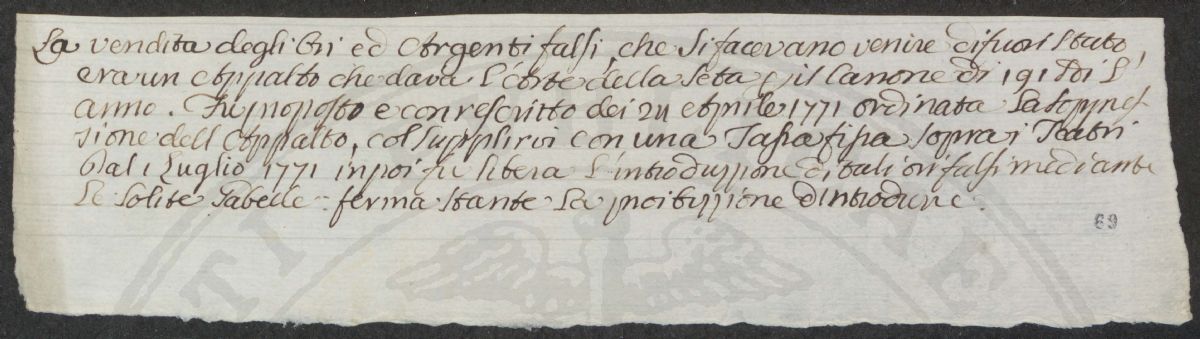 La vendita degli Ori ed Argenti falsi, che si facevano venire di fuori stato,
era un Appalto che dava l'Arte della Seta p il Canone di 191 di l'
anno. Fu proposto e con rescritto dei 24 Aprile 1771 ordinata la soppres
sione dell'Appalto, col supplirvi con una Tassa fissa sopra i Teatri
Dal 1 Luglio 1771 in poi fu libera l'introduzzione di tali ori falsi mediante
le solite Gabelle: ferma stante la proibizzione d'introdurre.
69